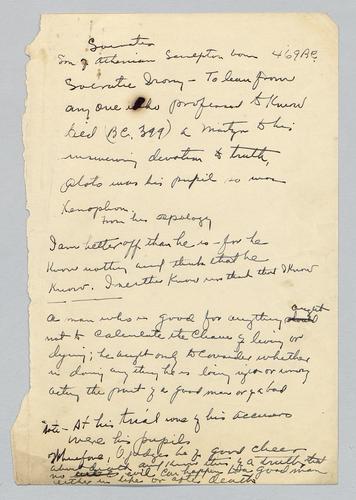 Socrates
Son of Athenian Sculptor born 469 BC.
Socratic Irony - To learn from
any one who professed to Know
Died (BC. 399) a Martyr to his
unswerving devotion to truth,
Plato was his pupil so was
Xenophon.
From his apology
I am better off than he is - for he
Know nothing and think that he
Know. I neither Know nor think that I Know
A man who is good for anything ought
not to calculate the chance of living or
dying; he ought only to consider whether
in doing any thing he is being right or wrong
acting the part of a good man or a bad
Note - At his trial none of his accusers
were his pupils
Wherefore, O Judges be of good cheer
about death and know this of a truth that
no evil can happen to a good man
either in life or after death